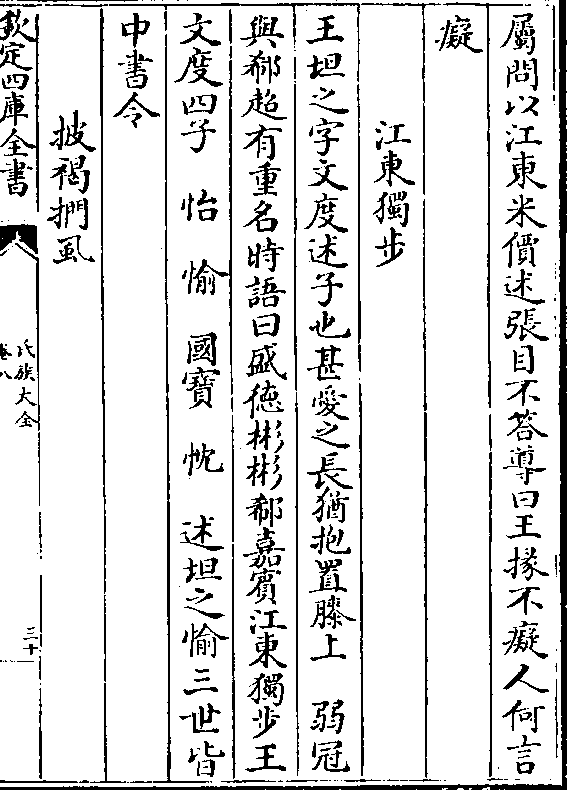 屬問以江東米價述張目不答導曰王掾不癡人何言
癡
江東獨步
王坦之字文度述子也甚愛之長猶抱置膝上　弱冠
與郗超有重名時語曰盛徳彬彬郗嘉賓江東獨步王
文度四子　怡　愉　國寶　忱　述坦之愉三世皆
中書令
披褐捫虱
欽定四庫全書
氏族大全
卷八
三十